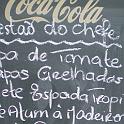 Coca-Cola
estão do chefe
pa de Tomate
apas Grelhadas
ete Espada Tropi
e Atum à Madeiren